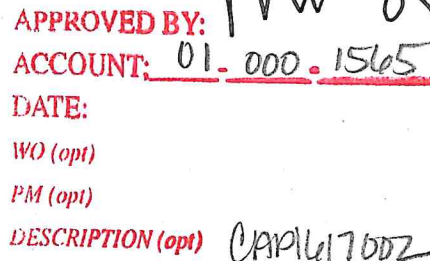 APPROVED BY:
ACCOUNT: 01-000-1565
DATE:
WO (opt)
PM (opt)
DESCRIPTION (opt) CAP1617002